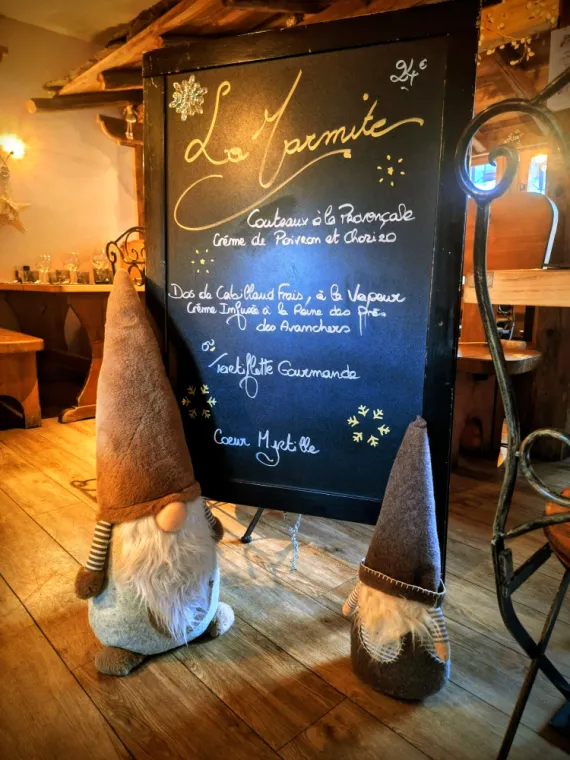 24€
La Marmite
Couteaux à la Provençale
Crème de Poivron et Chorizo
Dos de Cabillaud Frais, à la Vapeur
Crème Infusée à la Reine des près
des Avanchers
où
Tartiflette Gourmande
Coeur Myrtille